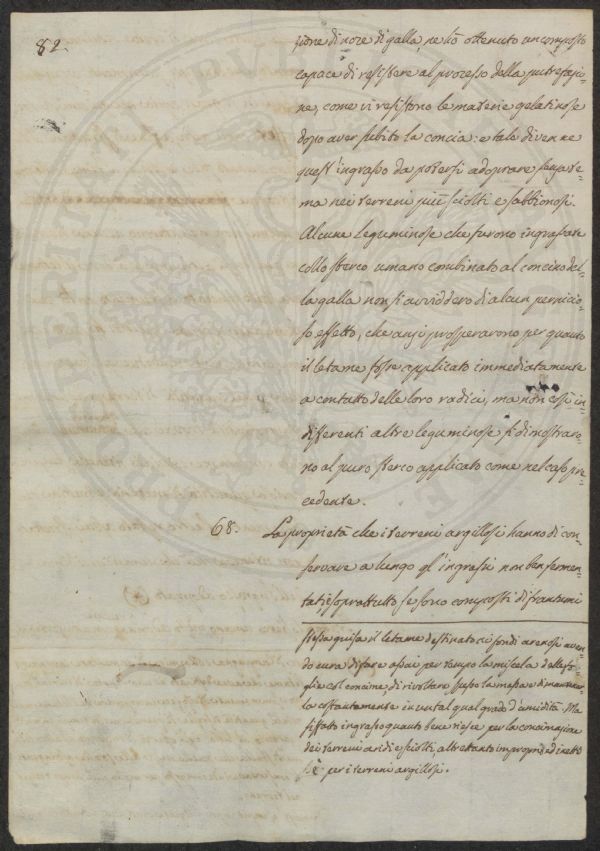 82.
zione di noce di galla, ne hò ottenuto un composto
capace di resistere al processo della putrefazio=
ne, come vi resistono le materie gelatinose
dopo aver subito la concia: e tale divenne
quest'ingrasso da potersi adoprare senza te=
ma nei terreni più sciolti e sabbionosi.
Alcune leguminose che furono ingrassate
collo sterco umano combinato al concino del=
la galla non si avviddero di alcun pernicio=
so effetto, che anzi prosperarono per quanto
il letame fosse applicato immediatamente
a contatto delle loro radici, ma non così in=
differenti altre leguminose si dimostraro=
no al puro sterco applicato come nel caso pre=
cedente.
68. La proprietà che i terreni argillosi hanno di con=
servare a lungo gl'ingrassi non ben fermen=
tati, e soprattutto se sono composti di frantumi
stessa guisa il letame destinato ai fondi arenosi aven=
do cura di fare assai per tempo la miscela delle fo=
glie col concime, di rivoltare spesso la massa e di mantener=
la costantemente in un tal qual grado d'umidità. Ma
siffatto ingrasso quanto bene riesce per la concimazione
dei terreni aridi e sciolti, altrettanto improprio ed inetto
si è per i terreni argillosi.